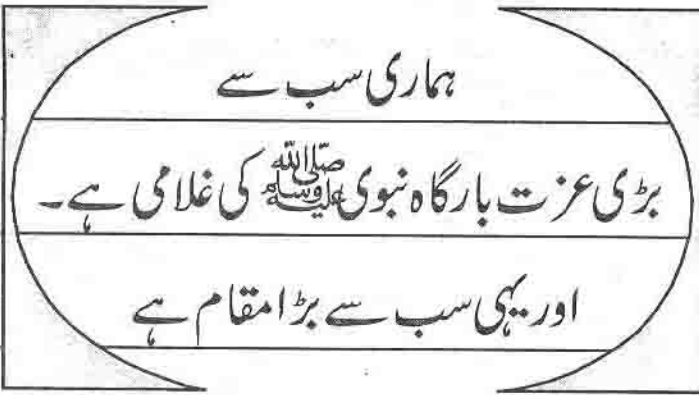 ہماری سب سے
بڑی عزت بارگاہ نبوی ﷺ کی غلامی ہے۔
اور یہی سب سے بڑا مقام ہے